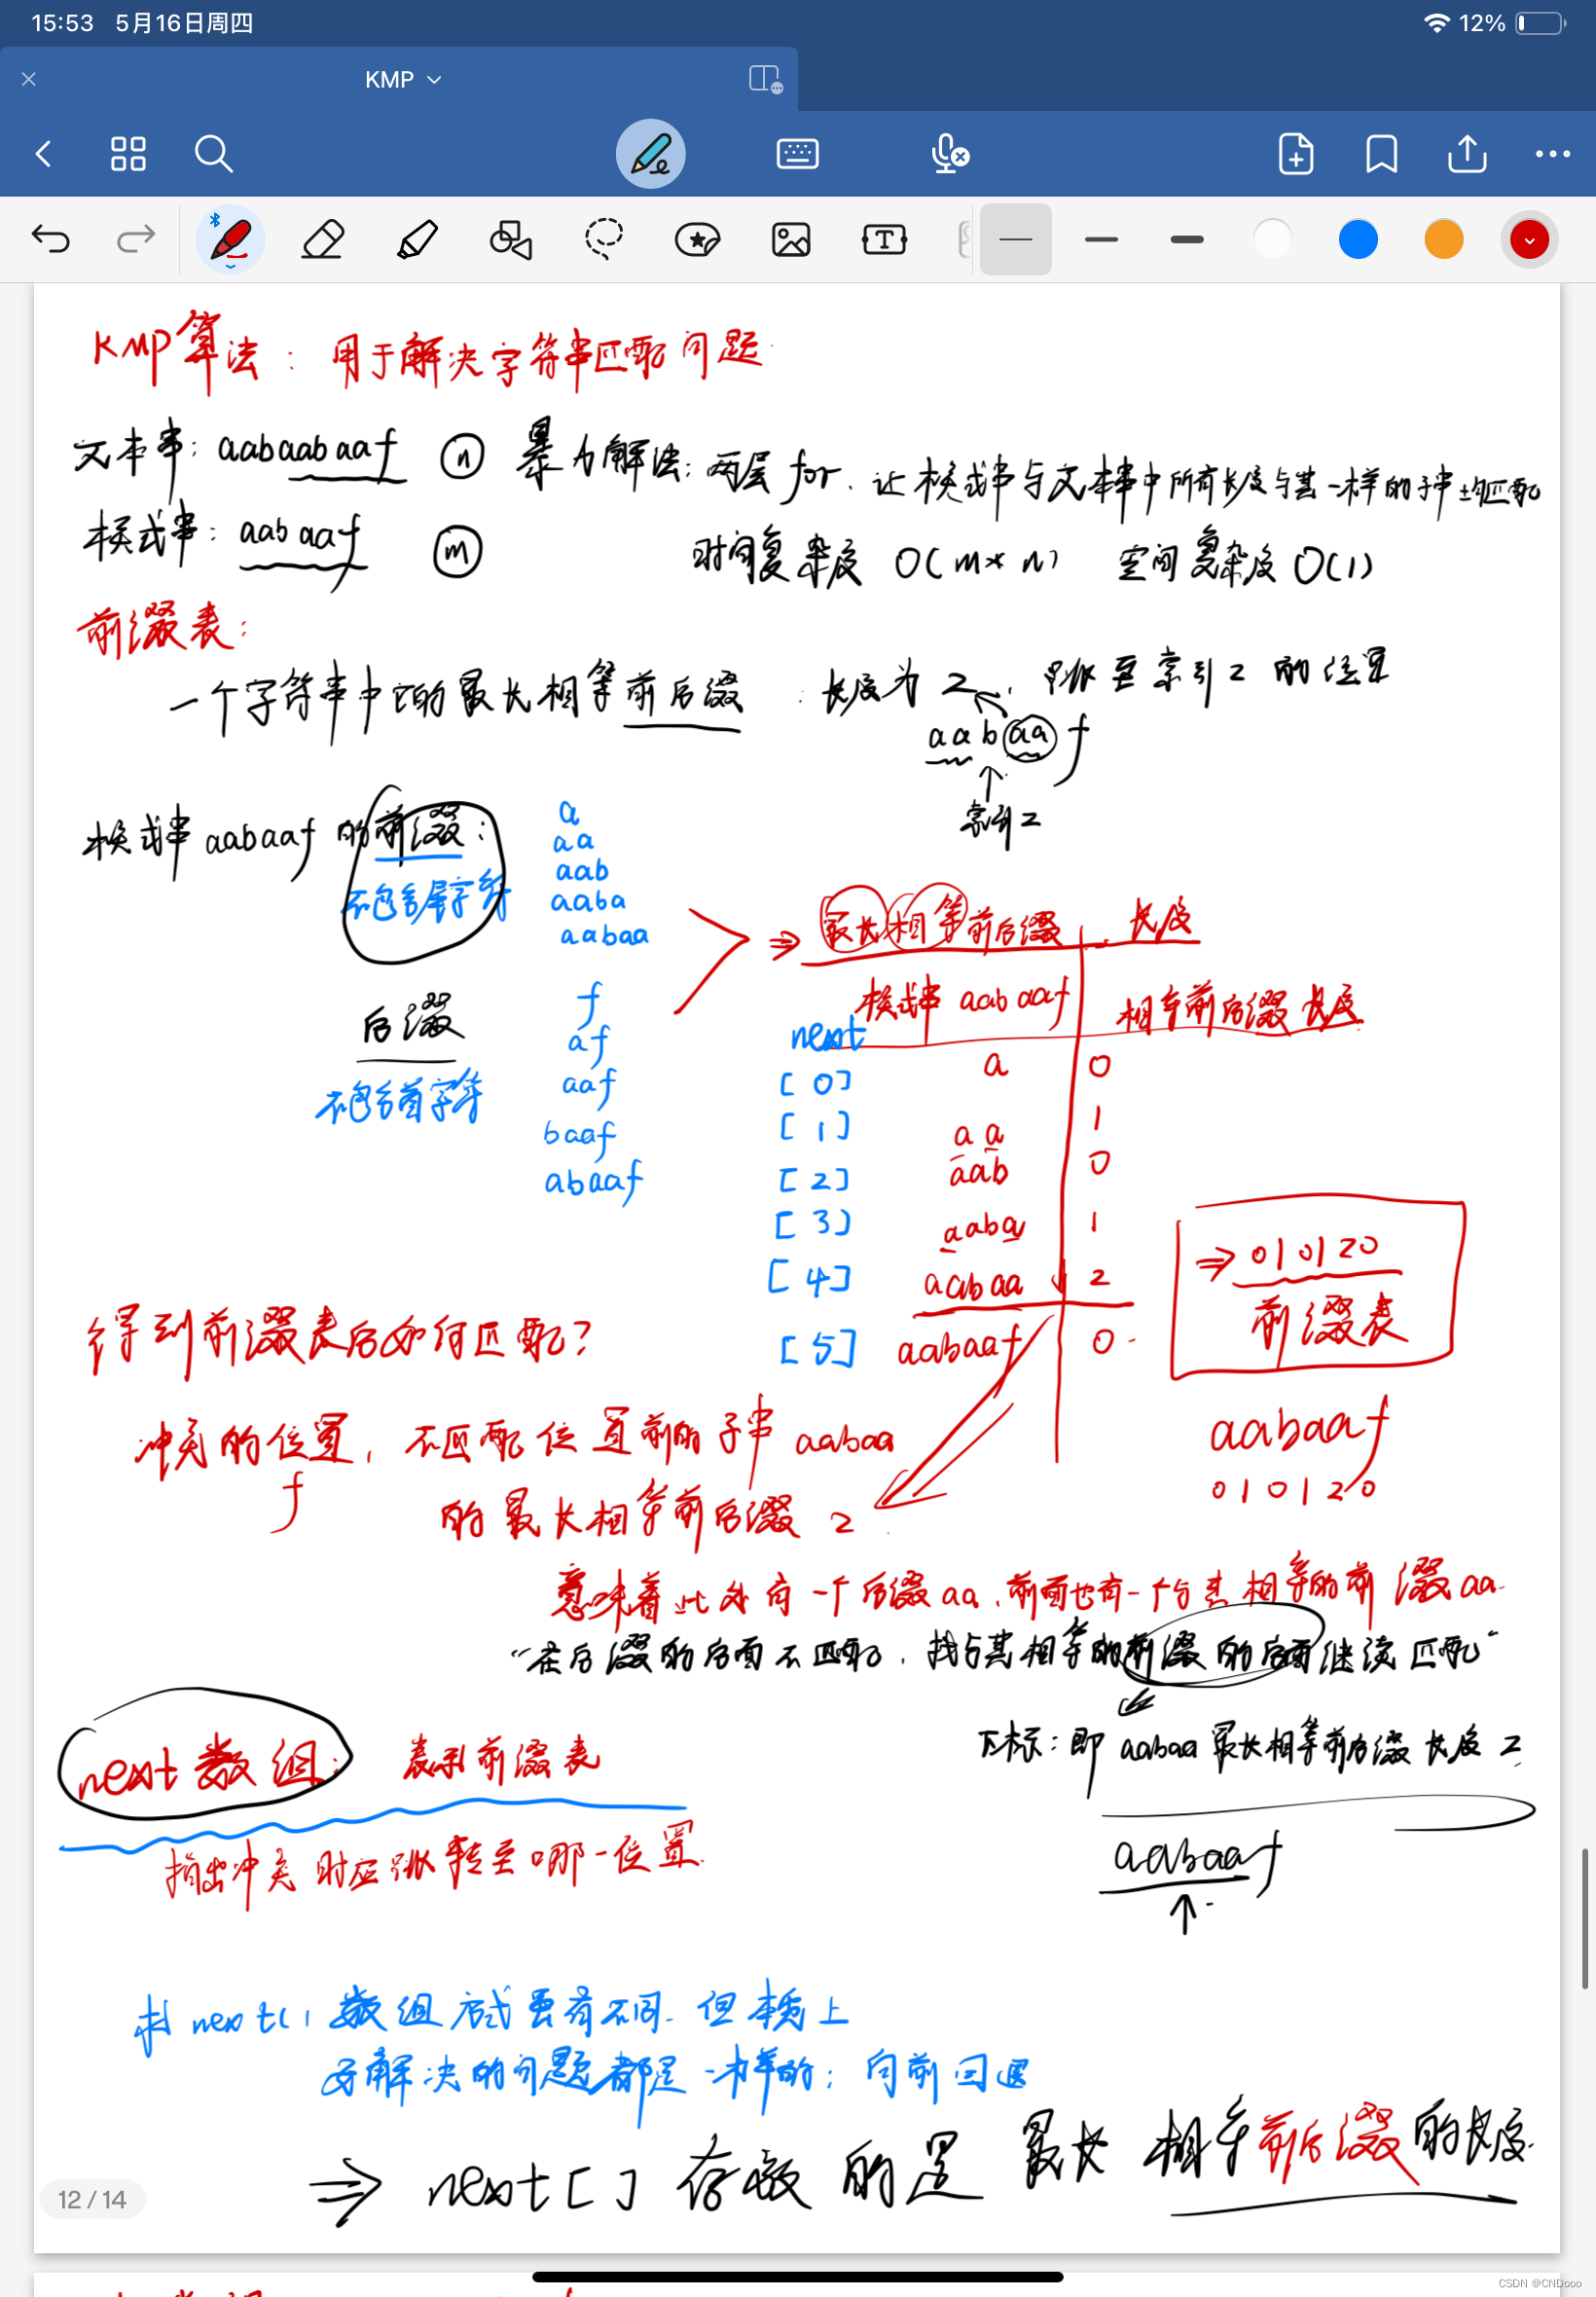 15:53 5月16日周四
12%
KMP
KMP算法：用于解决字符串匹配问题
文本串：aabaabaaf n 暴力解法：两层for. 让模式串与文本串中所有长度与其一样的子串均匹配
模式串：aabaaf m 时间复杂度 O(m*n) 空间复杂度 O(1)
前缀表：
一个字符串中它的最长相等前后缀：长度为2，跳至索引2的位置
aabaaf
索引2
模式串aabaaf的前缀：
不包含尾字符
a
aa
aab
aaba
aabaa
后缀
不包含首字符
f
af
aaf
baaf
abaaf
⇒ 最长相等前后缀 长度
模式串 aabaaf 相等前后缀长度
next
[0] a 0
[1] aa 1
[2] aab 0
[3] aaba 1
[4] aabaa 2
[5] aabaaf 0
⇒ 010120
前缀表
得到前缀表后如何匹配？
冲突的位置，不匹配位置前的子串 aabaa
f
的最长相等前后缀 2
aabaaf
010120
意味着此处有一个后缀aa，前面也有一个与其相等的前缀aa.
“在后缀的后面不匹配，找与其相等的前缀的后面继续匹配”
下标：即 aabaa 最长相等前后缀长度 2
aabaaf
next数组：表示前缀表
指出冲突时应跳转至哪一位置
next[]数组 虽有不同. 但本质上
解决的问题都是一样的：向前回退
⇒ next[]存放的是 最长相等前后缀的长度.
12 / 14
CSDN @CNDooo